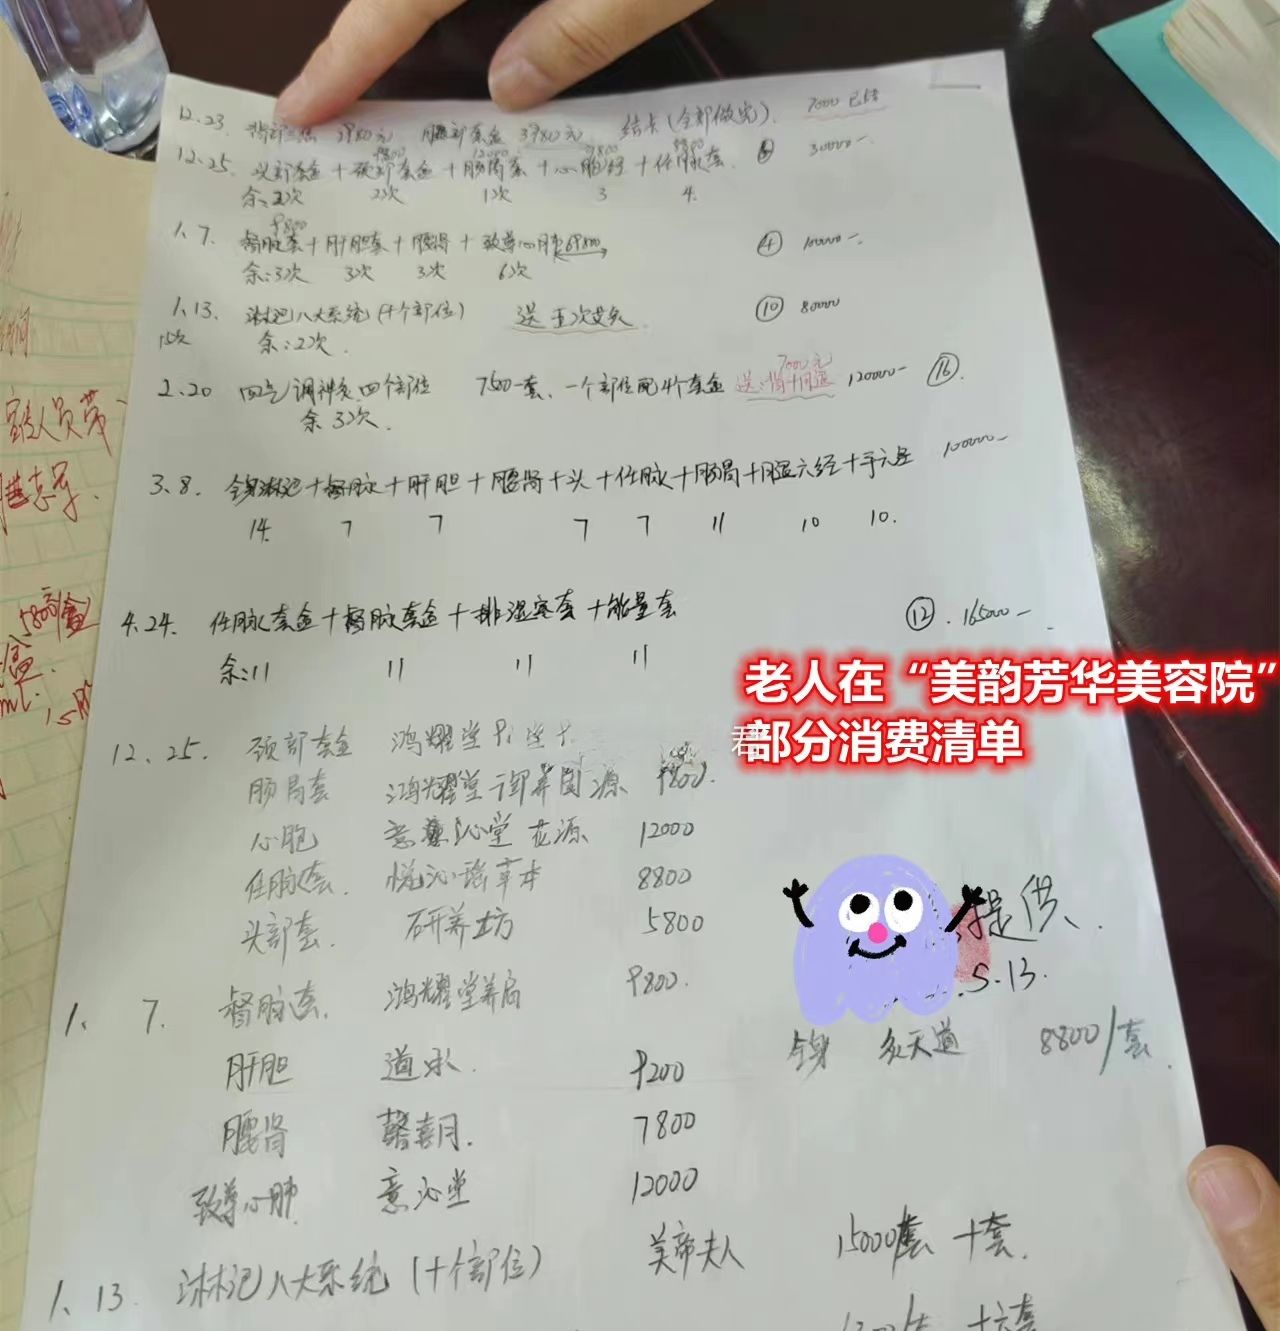 12.23. 背部三伍 3980元 腿部套盒 3980元 结卡(全部做完). 7000已结
9800 12000 9800 8800
12.25. 头部套盒+颈部套盒+肠胃套+心胞经+任脉套. 30000-.
余:2次 2次 1次 3 4.
9800
1.7. 督脉套+肝胆套+腰肾+致尊心肺69800 ④ 10000-.
余:3次 3次 3次 6次
1.13. 淋巴八大系统(十个部位) 送五次艾灸. ⑩ 80000
15次 余:2次.
7000元
2.20 四气调神套.四个部位 7500一套、一个部位配4个套盒 送:背+月退 120000- ⑯.
余3次.
3.8. 全身淋巴+督脉+肝胆+腰肾+头+任脉+肠胃+腿六经+手六经 100000-
14. 7 7 7 7 11 10 10.
4.24. 任脉套盒+督脉套盒+排湿寒套+能量套 ⑫.165000-
余:11 11 11 11
老人在“美韵芳华美容院”
部分消费清单
12.25. 颈部套盒 鸿耀堂
肠胃套 鸿耀堂御养国源 9800.
心胞 意沁堂 花源 12000
任脉套. 悦沁瑶草本 8800
头部套. 研养坊 5800
提供.
5.13.
1. 7. 督脉套. 鸿耀堂养肩 9800.
全身 灸天道 8800/套.
肝胆 道承. 9200
腰肾 7800
致尊心肺. 意沁堂 12000
1.13. 淋巴八大系统(十个部位) 美帝夫人 15000/套 十套.
十六套
宣传人员带
5800元/盒